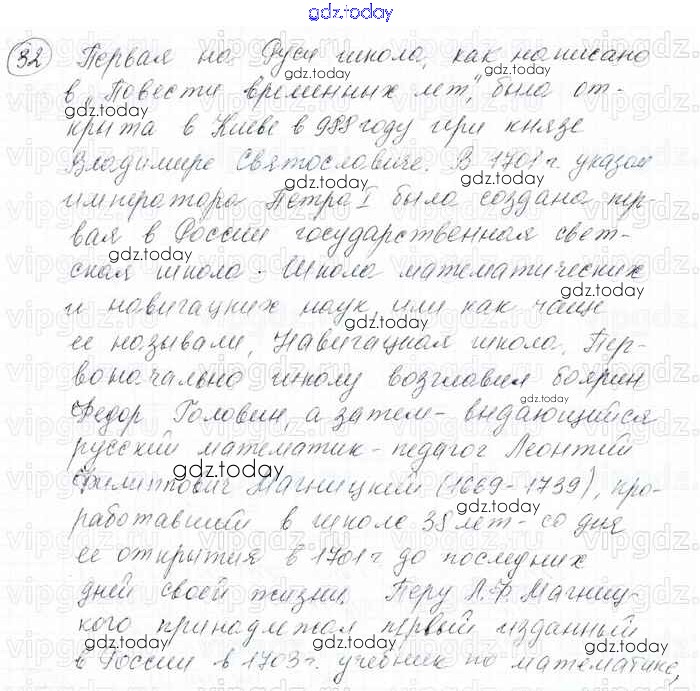 gdz.today
32 Первая на Руси школа, как написано
в „Повести временных лет," была от-
крыта в Киеве в 988 году при князе
Владимире Святославиче. В 1701 г. указом
императора Петра I была создана пер-
вая в России государственная свет-
ская школа - Школа математических
и навигацких наук, или как чаще
ее называли, Навигацкая школа. Пер-
воначально школу возглавил боярин
Федор Головин, а затем - выдающийся
русский математик - педагог Леонтий
Филиппович Магницкий (1669-1739), про-
работавший в школе 38 лет - со дня
ее открытия в 1701 г. до последних
дней своей жизни. Перу Л.Ф. Магниц-
кого принадлежал первый изданный
в России в 1703 г. учебник по математике,